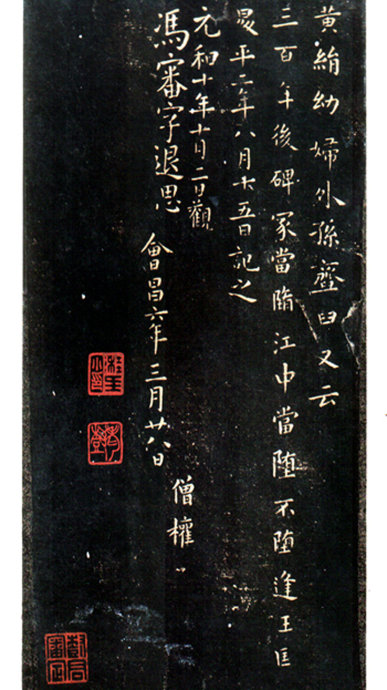 黃絹幼婦外孫韲臼又云
三百年後碑冢當堕江中當堕不堕逢王匡
昇平二年八月十五日記之
元和十年十月二日觀
馮審字退思
會昌六年三月廿八日
僧權